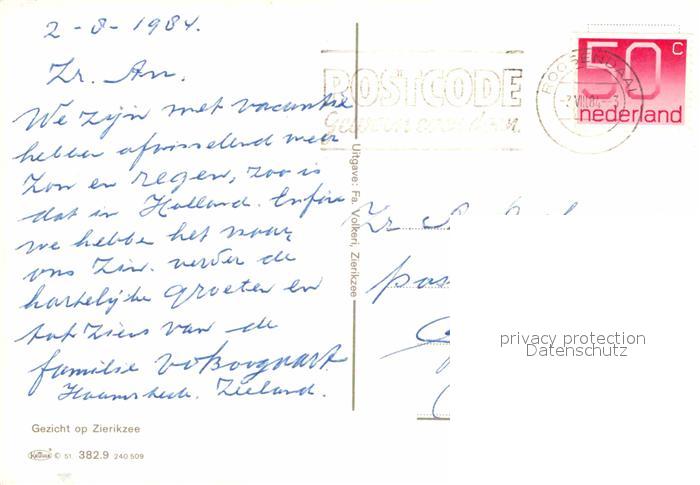 2-8-1984.
Zr. An.
We zijn met vacantie
hebben afwisselend weer
Zon en regen, zoo is
dat in Holland. Enfin
we hebbe het naar
ons Zin. verder de
hartelijke groeten en
tot Ziens van de
familie
Haamstede. Zeeland.
Gezicht op Zierikzee
© 51. 382.9 240 509
Uitgave: Fa. Volkeri, Zierikzee
POSTCODE
Gewoon even doen.
ROOSENDAAL
50 c
nederland
Zr
privacy protection
Datenschutz